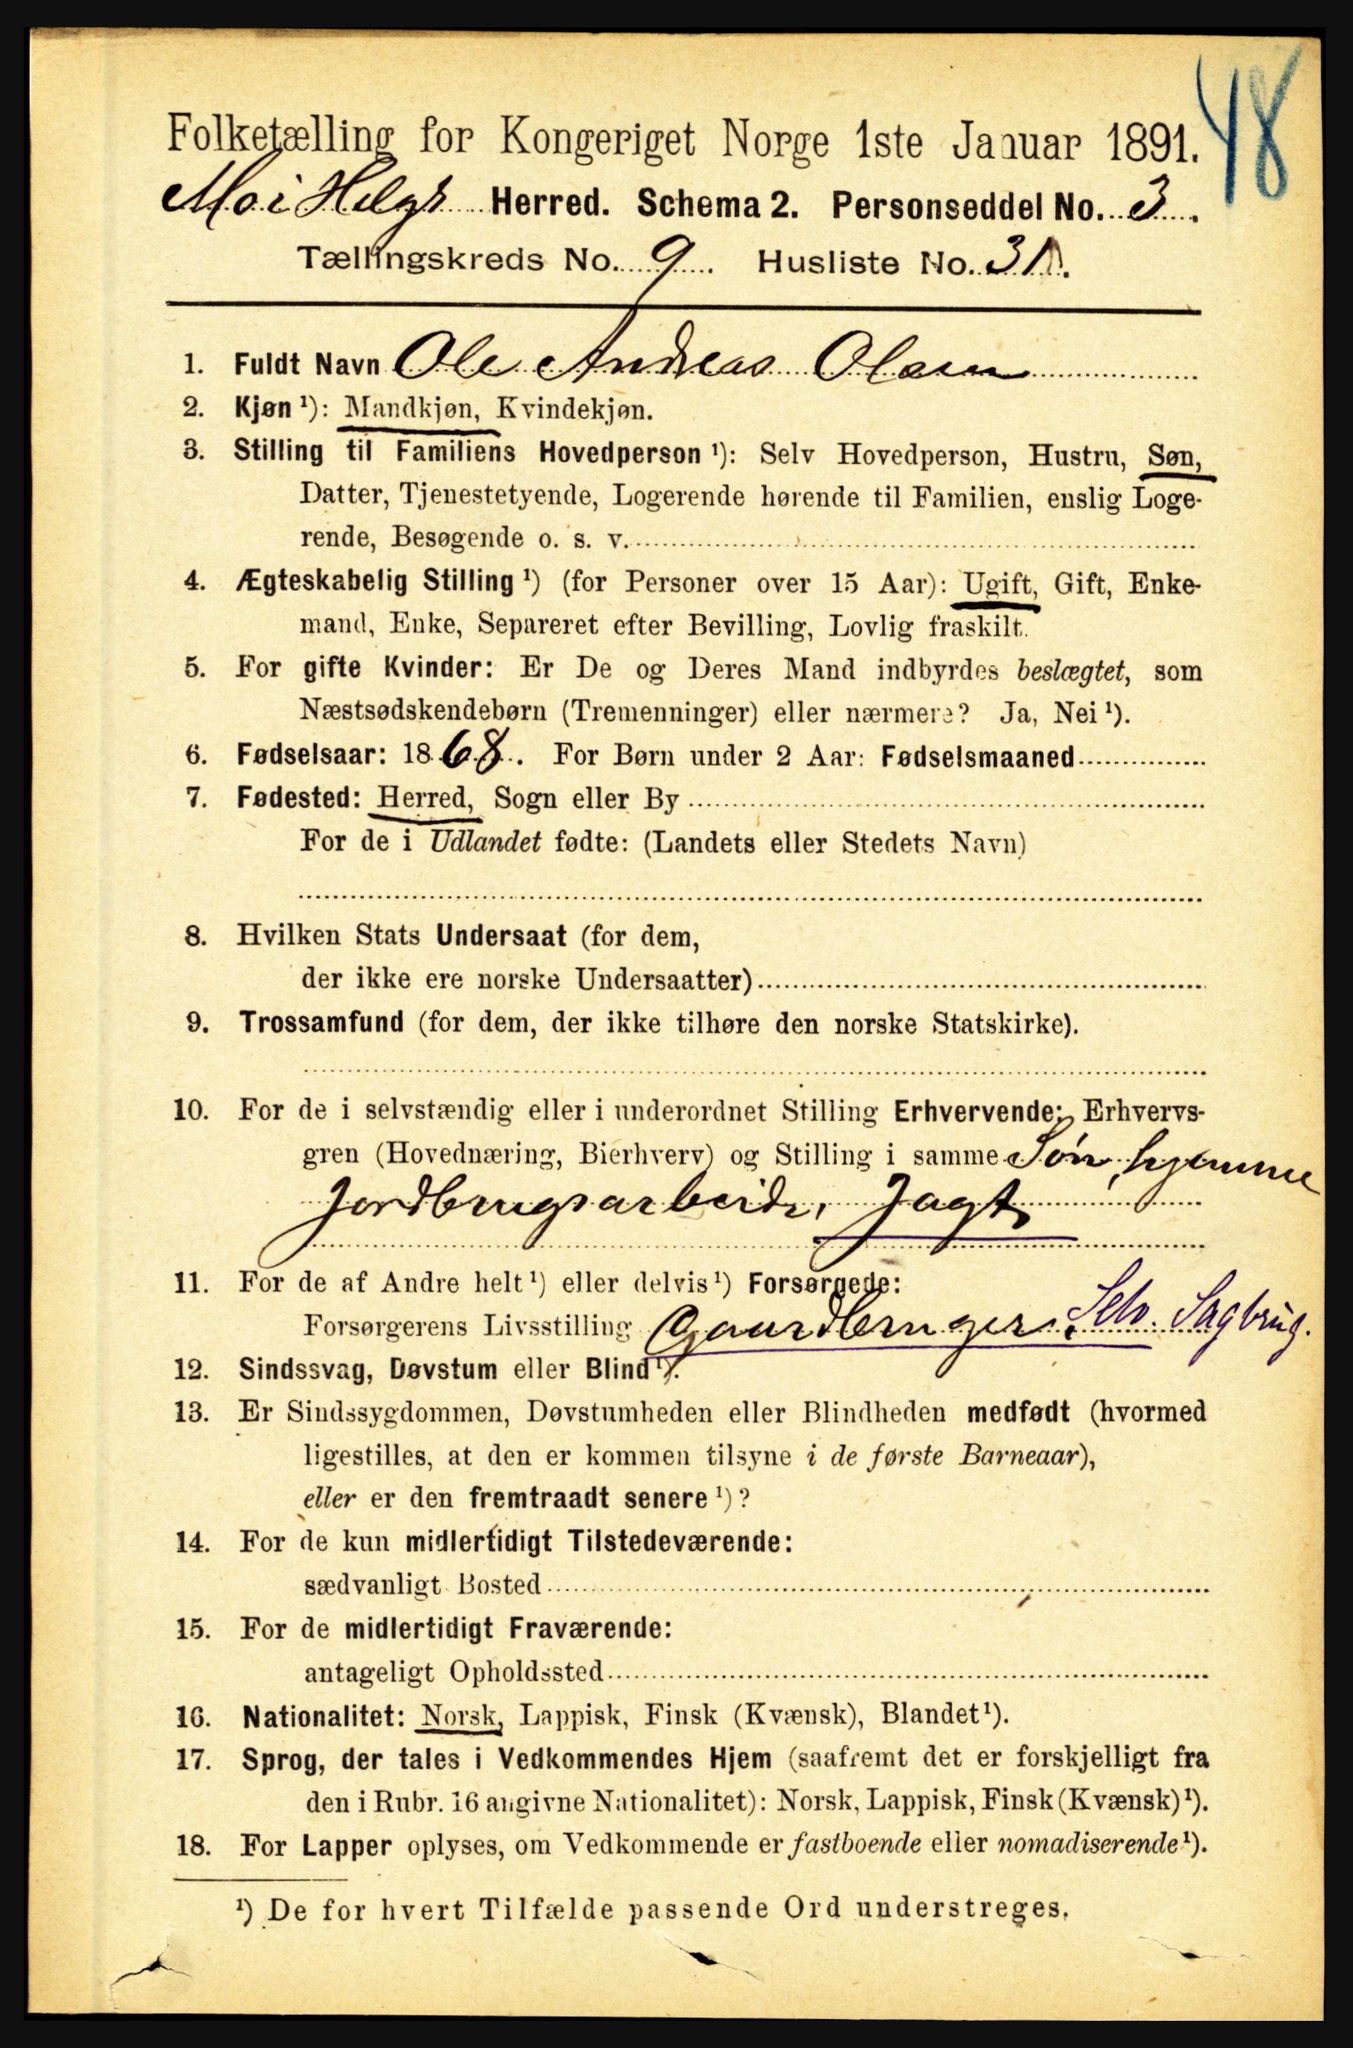 48
Folketælling for Kongeriget Norge 1ste Januar 1891.
Mo i Helg. Herred. Schema 2. Personseddel No. 3.
Tællingskreds No. 9. Husliste No. 31.
1. Fuldt Navn Ole Andreas Olsen
2. Kjøn ¹): Mandkjøn, Kvindekjøn.
3. Stilling til Familiens Hovedperson ¹): Selv Hovedperson, Hustru, Søn,
Datter, Tjenestetyende, Logerende hørende til Familien, enslig Loge-
rende, Besøgende o. s. v.
4. Ægteskabelig Stilling ¹) (for Personer over 15 Aar): Ugift, Gift, Enke-
mand, Enke, Separeret efter Bevilling, Lovlig fraskilt.
5. For gifte Kvinder: Er De og Deres Mand indbyrdes beslægtet, som
Næstsødskendebørn (Tremenninger) eller nærmere? Ja, Nei ¹).
6. Fødselsaar: 1868. For Børn under 2 Aar: Fødselsmaaned
7. Fødested: Herred, Sogn eller By
For de i Udlandet fødte: (Landets eller Stedets Navn)
8. Hvilken Stats Undersaat (for dem,
der ikke ere norske Undersaatter)
9. Trossamfund (for dem, der ikke tilhøre den norske Statskirke).
10. For de i selvstændig eller i underordnet Stilling Erhvervende: Erhvervs-
gren (Hovednæring, Bierhverv) og Stilling i samme Søn, hjemme
Jordbrugsarbeide, Jagt
11. For de af Andre helt ¹) eller delvis ¹) Forsørgede:
Forsørgerens Livsstilling Gaardbruger, Selv. Sagbrug.
12. Sindssvag, Døvstum eller Blind ¹).
13. Er Sindssygdommen, Døvstumheden eller Blindheden medfødt (hvormed
ligestilles, at den er kommen tilsyne i de første Barneaar),
eller er den fremtraadt senere ¹)?
14. For de kun midlertidigt Tilstedeværende:
sædvanligt Bosted
15. For de midlertidigt Fraværende:
antageligt Opholdssted
16. Nationalitet: Norsk, Lappisk, Finsk (Kvænsk), Blandet ¹).
17. Sprog, der tales i Vedkommendes Hjem (saafremt det er forskjelligt fra
den i Rubr. 16 angivne Nationalitet): Norsk, Lappisk, Finsk (Kvænsk) ¹).
18. For Lapper oplyses, om Vedkommende er fastboende eller nomadiserende ¹).
¹) De for hvert Tilfælde passende Ord understreges.